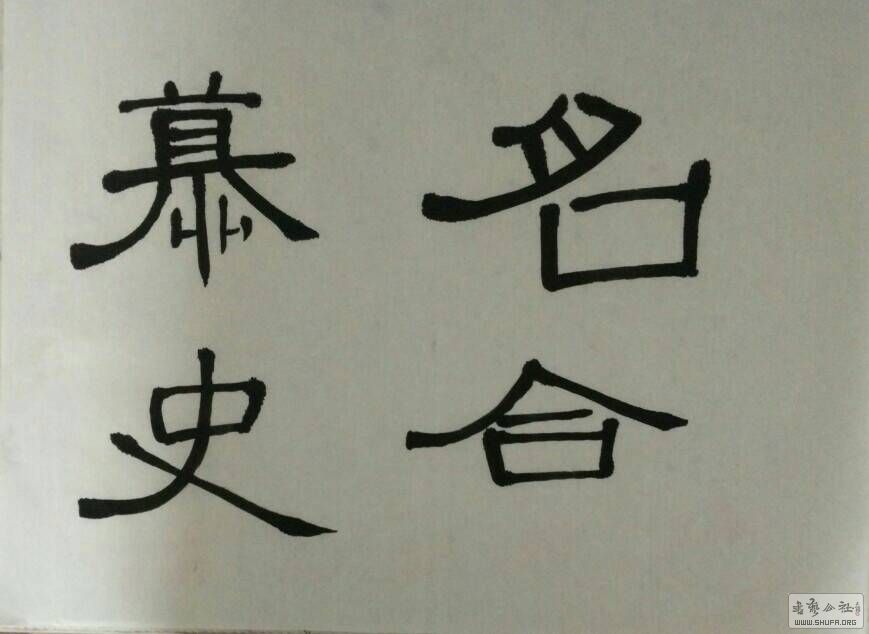 名合
慕史
书艺公社
WWW.SHUFA.ORG